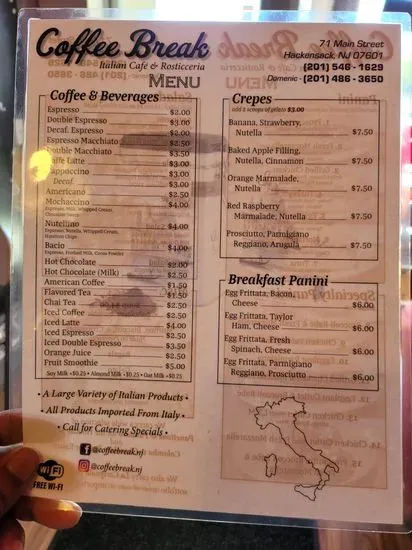 Coffee Break
Italian Café & Rosticceria
MENU
71 Main Street
Hackensack, NJ 07601
(201) 546 - 1629
Domenic - (201) 486 - 3650
Coffee & Beverages
Espresso $2.00
Double Espresso $3.00
Decaf. Espresso $2.00
Espresso Macchiato $2.50
Double Macchiato $3.50
Caffe Latte $3.00
Cappuccino $3.00
Decaf $3.00
Americano $2.50
Mochaccino $4.00
Espresso, Milk, Whipped Cream,
Chocolate Sauce
Nutellino $4.00
Espresso, Nutella, Whipped Cream,
Hazelnut Chips
Bacio $4.00
Espresso, Frothed Milk, Cocoa Powder
Hot Chocolate $2.00
Hot Chocolate (Milk) $2.50
American Coffee $1.50
Flavored Tea $1.50
Chai Tea $2.50
Iced Coffee $2.50
Iced Latte $4.00
Iced Espresso $2.50
Iced Double Espresso $3.50
Orange Juice $2.50
Fruit Smoothie $5.00
Soy Milk +$0.25 • Almond Milk +$0.25 • Oat Milk +$0.25
• A Large Variety of Italian Products •
• All Products Imported From Italy •
• Call for Catering Specials •
@coffeebreak.nj
@coffeebreak.nj
Wi Fi
FREE WI-FI
Crepes
add a scoops of gelato $3.00
Banana, Strawberry,
Nutella $7.50
Baked Apple Filling,
Nutella, Cinnamon $7.50
Orange Marmalade,
Nutella $7.50
Red Raspberry
Marmalade, Nutella $7.50
Prosciutto, Parmigiano
Reggiano, Arugula $7.50
Breakfast Panini
Egg Frittata, Bacon,
Cheese $6.00
Egg Frittata, Taylor
Ham, Cheese $6.00
Egg Frittata, Fresh
Spinach, Cheese $6.00
Egg Frittata, Parmigiano
Reggiano, Prosciutto $6.00